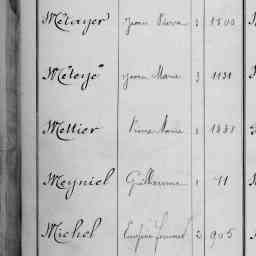 Métayer Jean Pierre 3 1500
Méteyé Jean Marie 3 1131
Mettier Pierre Marie 1 1331
Meyniel Guillaume 1 11
Michel Eugène 2 905